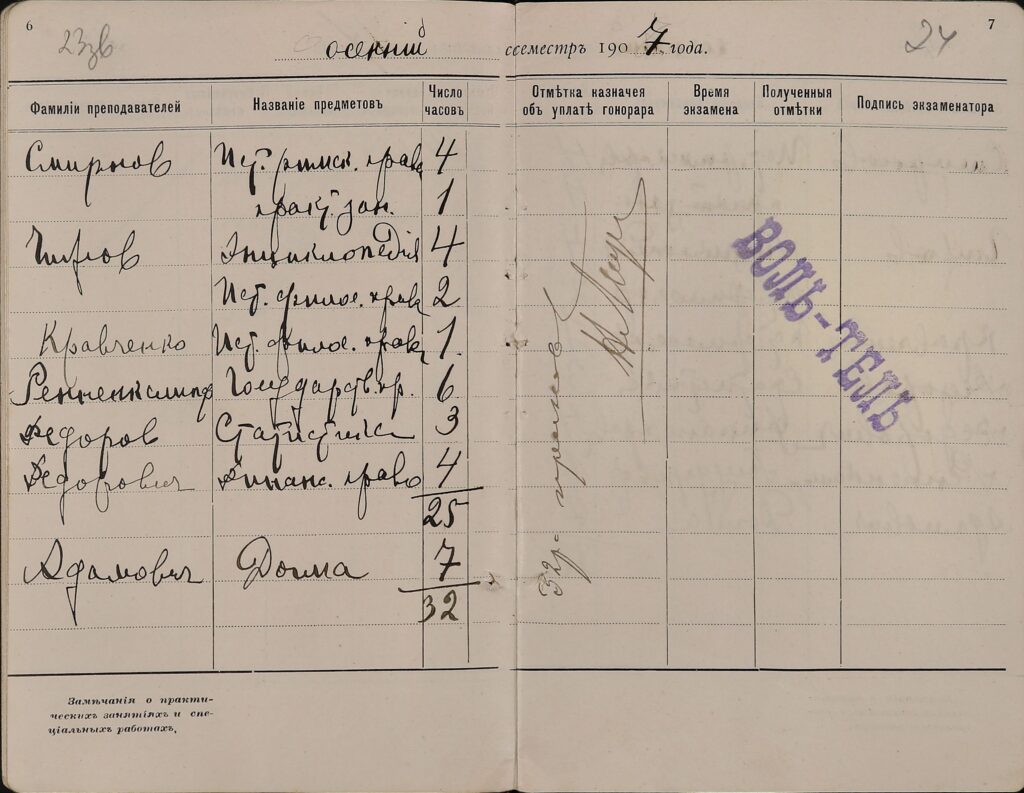 6
23зв
осенній семестръ 1907 года.
24
7
Фамиліи преподавателей Названіе предметовъ Число часовъ Отмѣтка казначея объ уплатѣ гонорара Время экзамена Полученныя отмѣтки Подпись экзаменатора
Смирнов Ист. римск. права 4
практ. зан. 1
Энциклопедія 4
Ист. филос. права 2
Кравченко Ист. филос. права 1
Ренненкампф Государств. пр. 6
Федоров Статистика 3
Федорович Финанс. право 4
25
Адамович Догма 7
32
32р.
ВОЛЬ-ТЕЛЬ
Замѣчанія о практи-
ческихъ занятіяхъ и спе-
ціальныхъ работахъ,